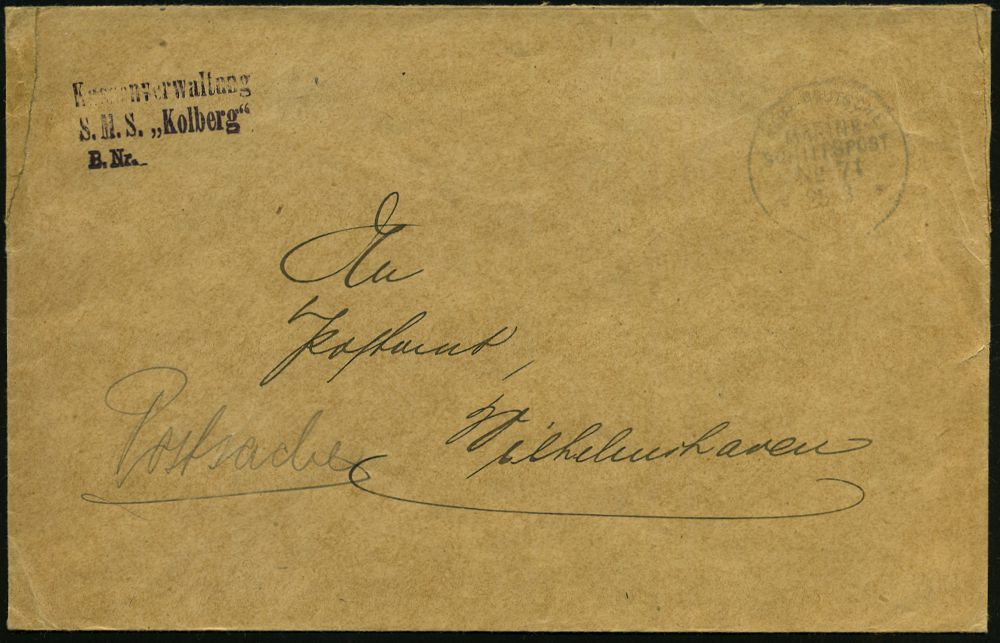 Kassenverwaltung
S. M. S. „Kolberg“
B. Nr.
DEUTSCHE
MARINE
SCHIFFSPOST
No 71
An
Postamt,
Postsache
Wilhelmshaven